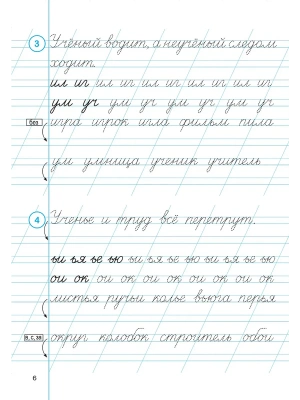 3 Учёный водит, а неучёный следом
ходит.
ил иг ил иг ил иг ил иг ил иг
ум уч ум уч ум уч ум уч
без игра игрок игла фильм пила
ум умница ученик учитель
4 Ученье и труд всё перетрут.
ыи ья ье ью ыи ья ье ью ыи ья ье ью
ои ок ои ок ои ок ои ок ои ок
листья ручьи колье вьюга перья
округ колобок строитель обои
6